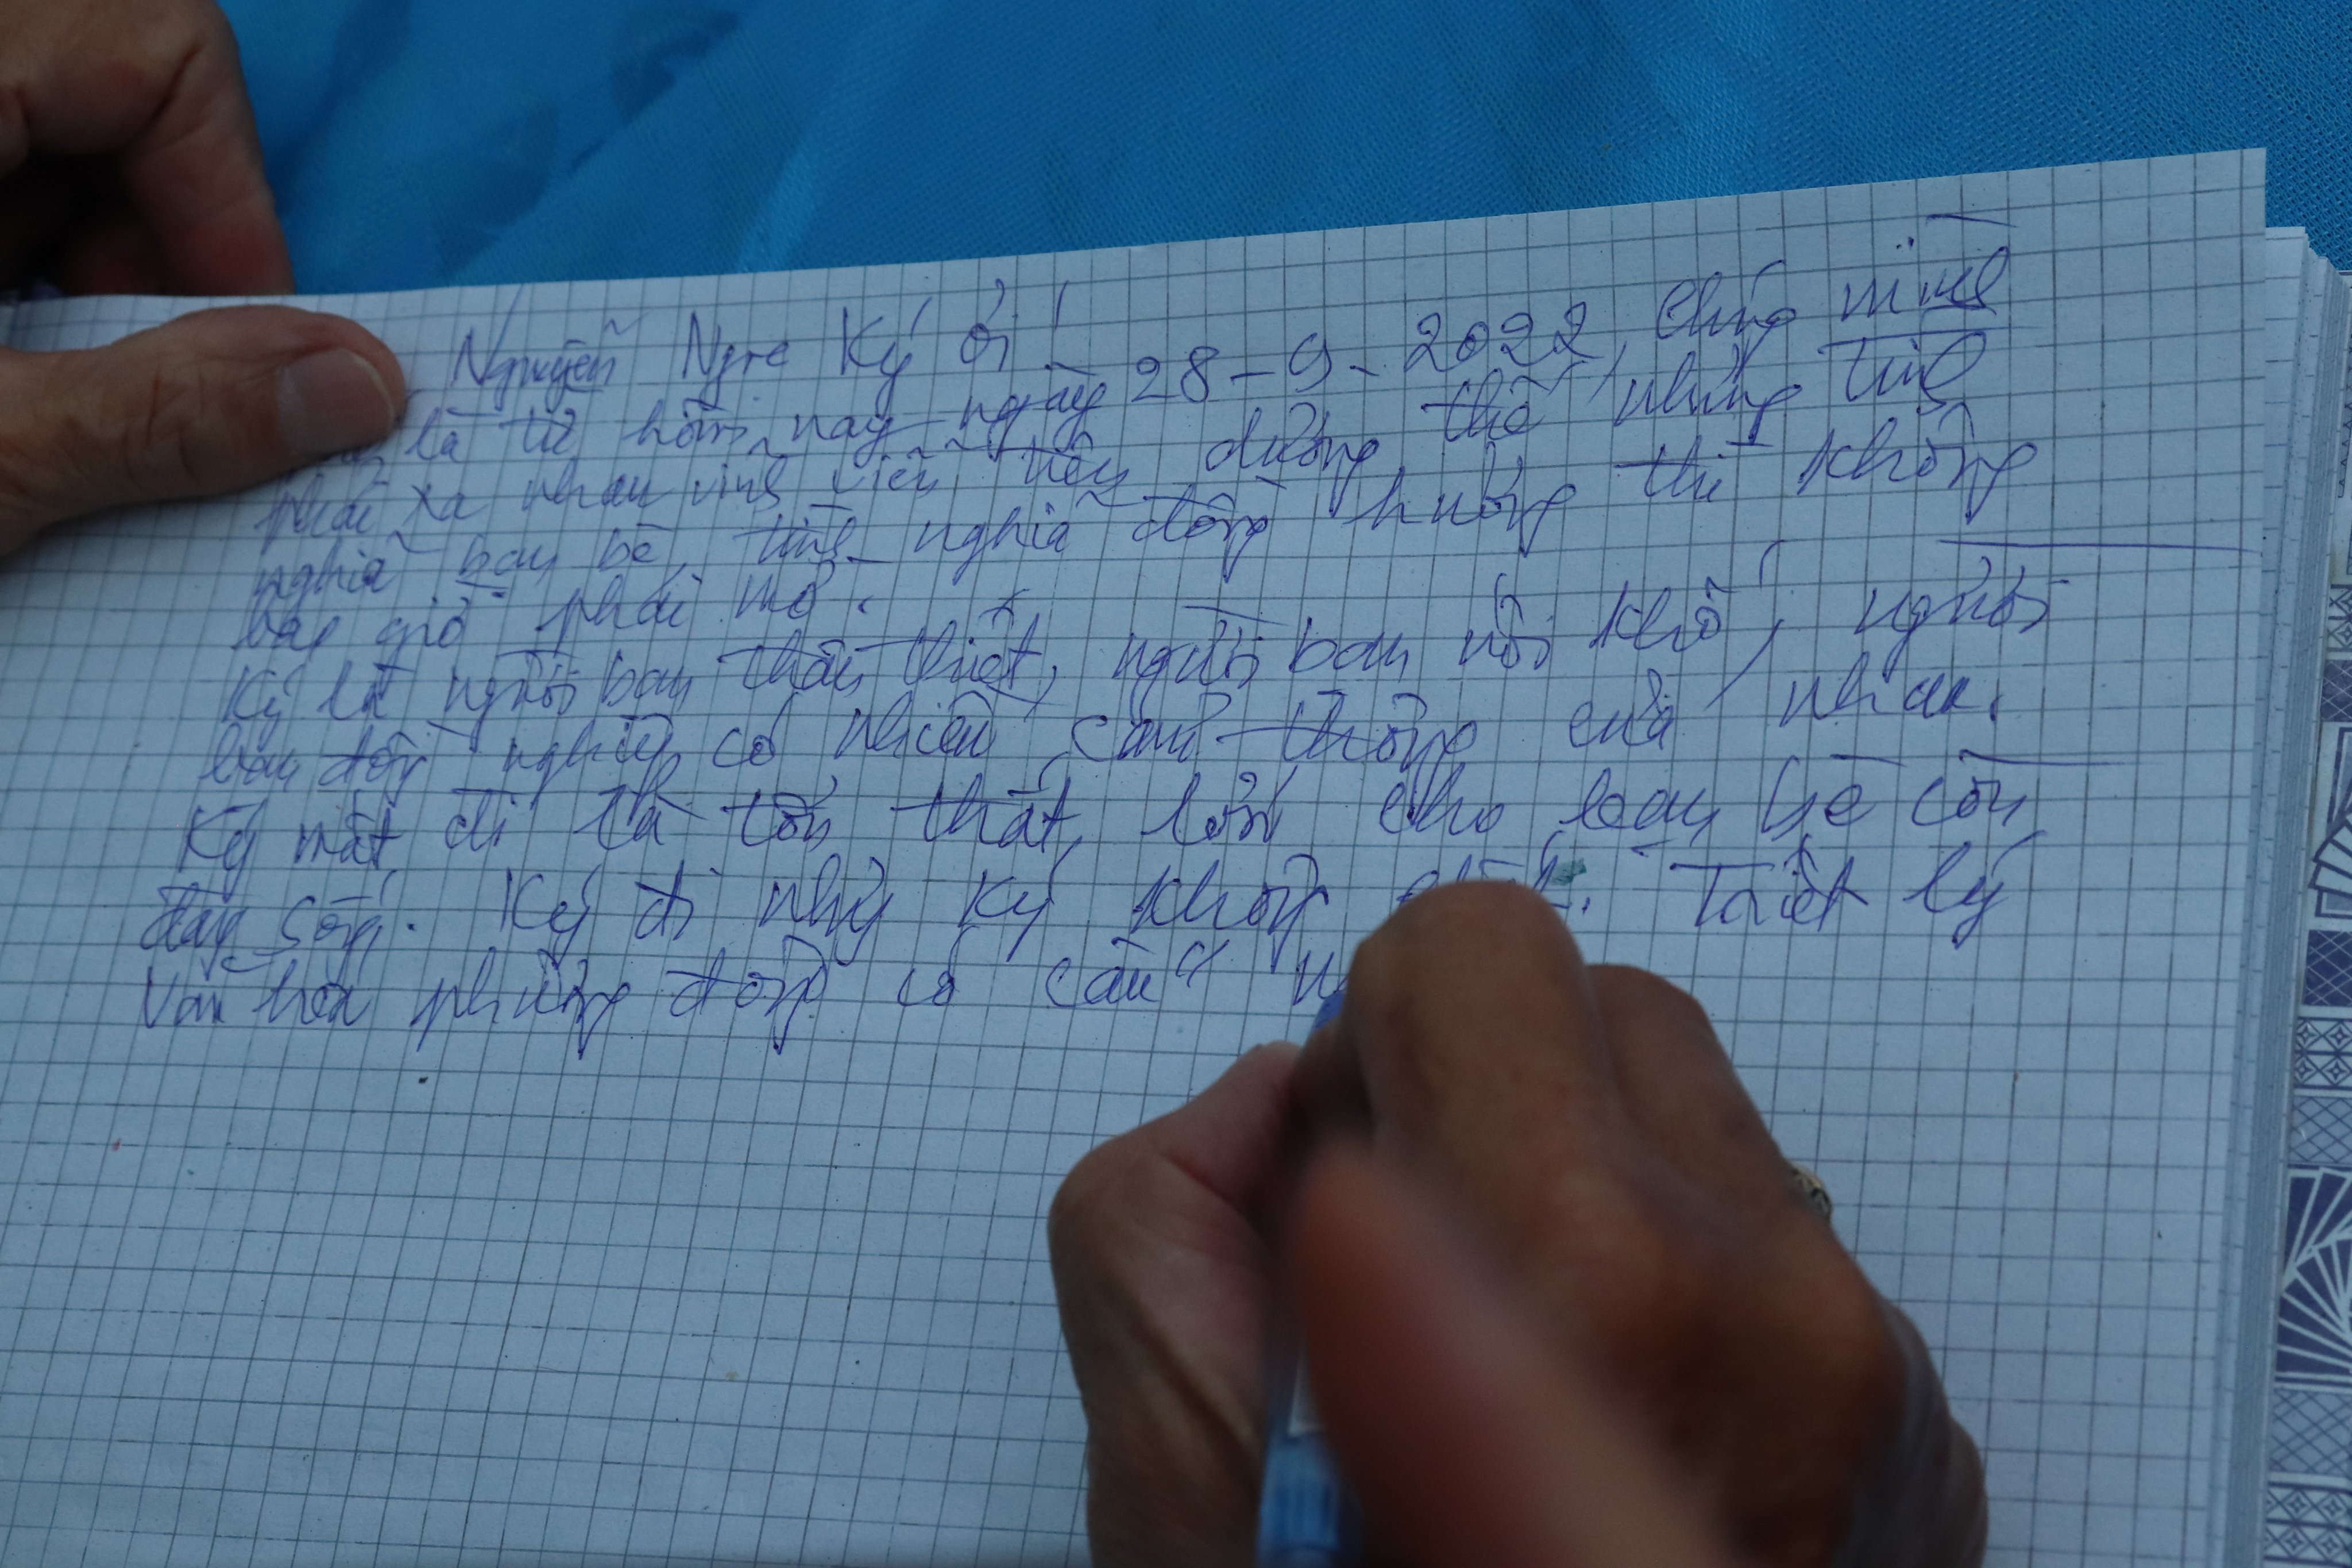 Nguyễn Ngọc Ký ơi!
là từ hôm nay ngày 28-9-2022, chúng mình
phải xa nhau vĩnh viễn trên dương thế, những tình
nghĩa bạn bè, tình nghĩa đồng hương thì không
bao giờ phải mờ.
Ký là người bạn thân thiết, người bạn nối khố, người
bạn đồng nghiệp có nhiều cảm thông của nhau.
Ký mất đi là tổn thất lớn cho bạn bè còn
đang sống. Ký đi nhưng Ký không chết. Triết lý
Văn hóa phương đông có câu "